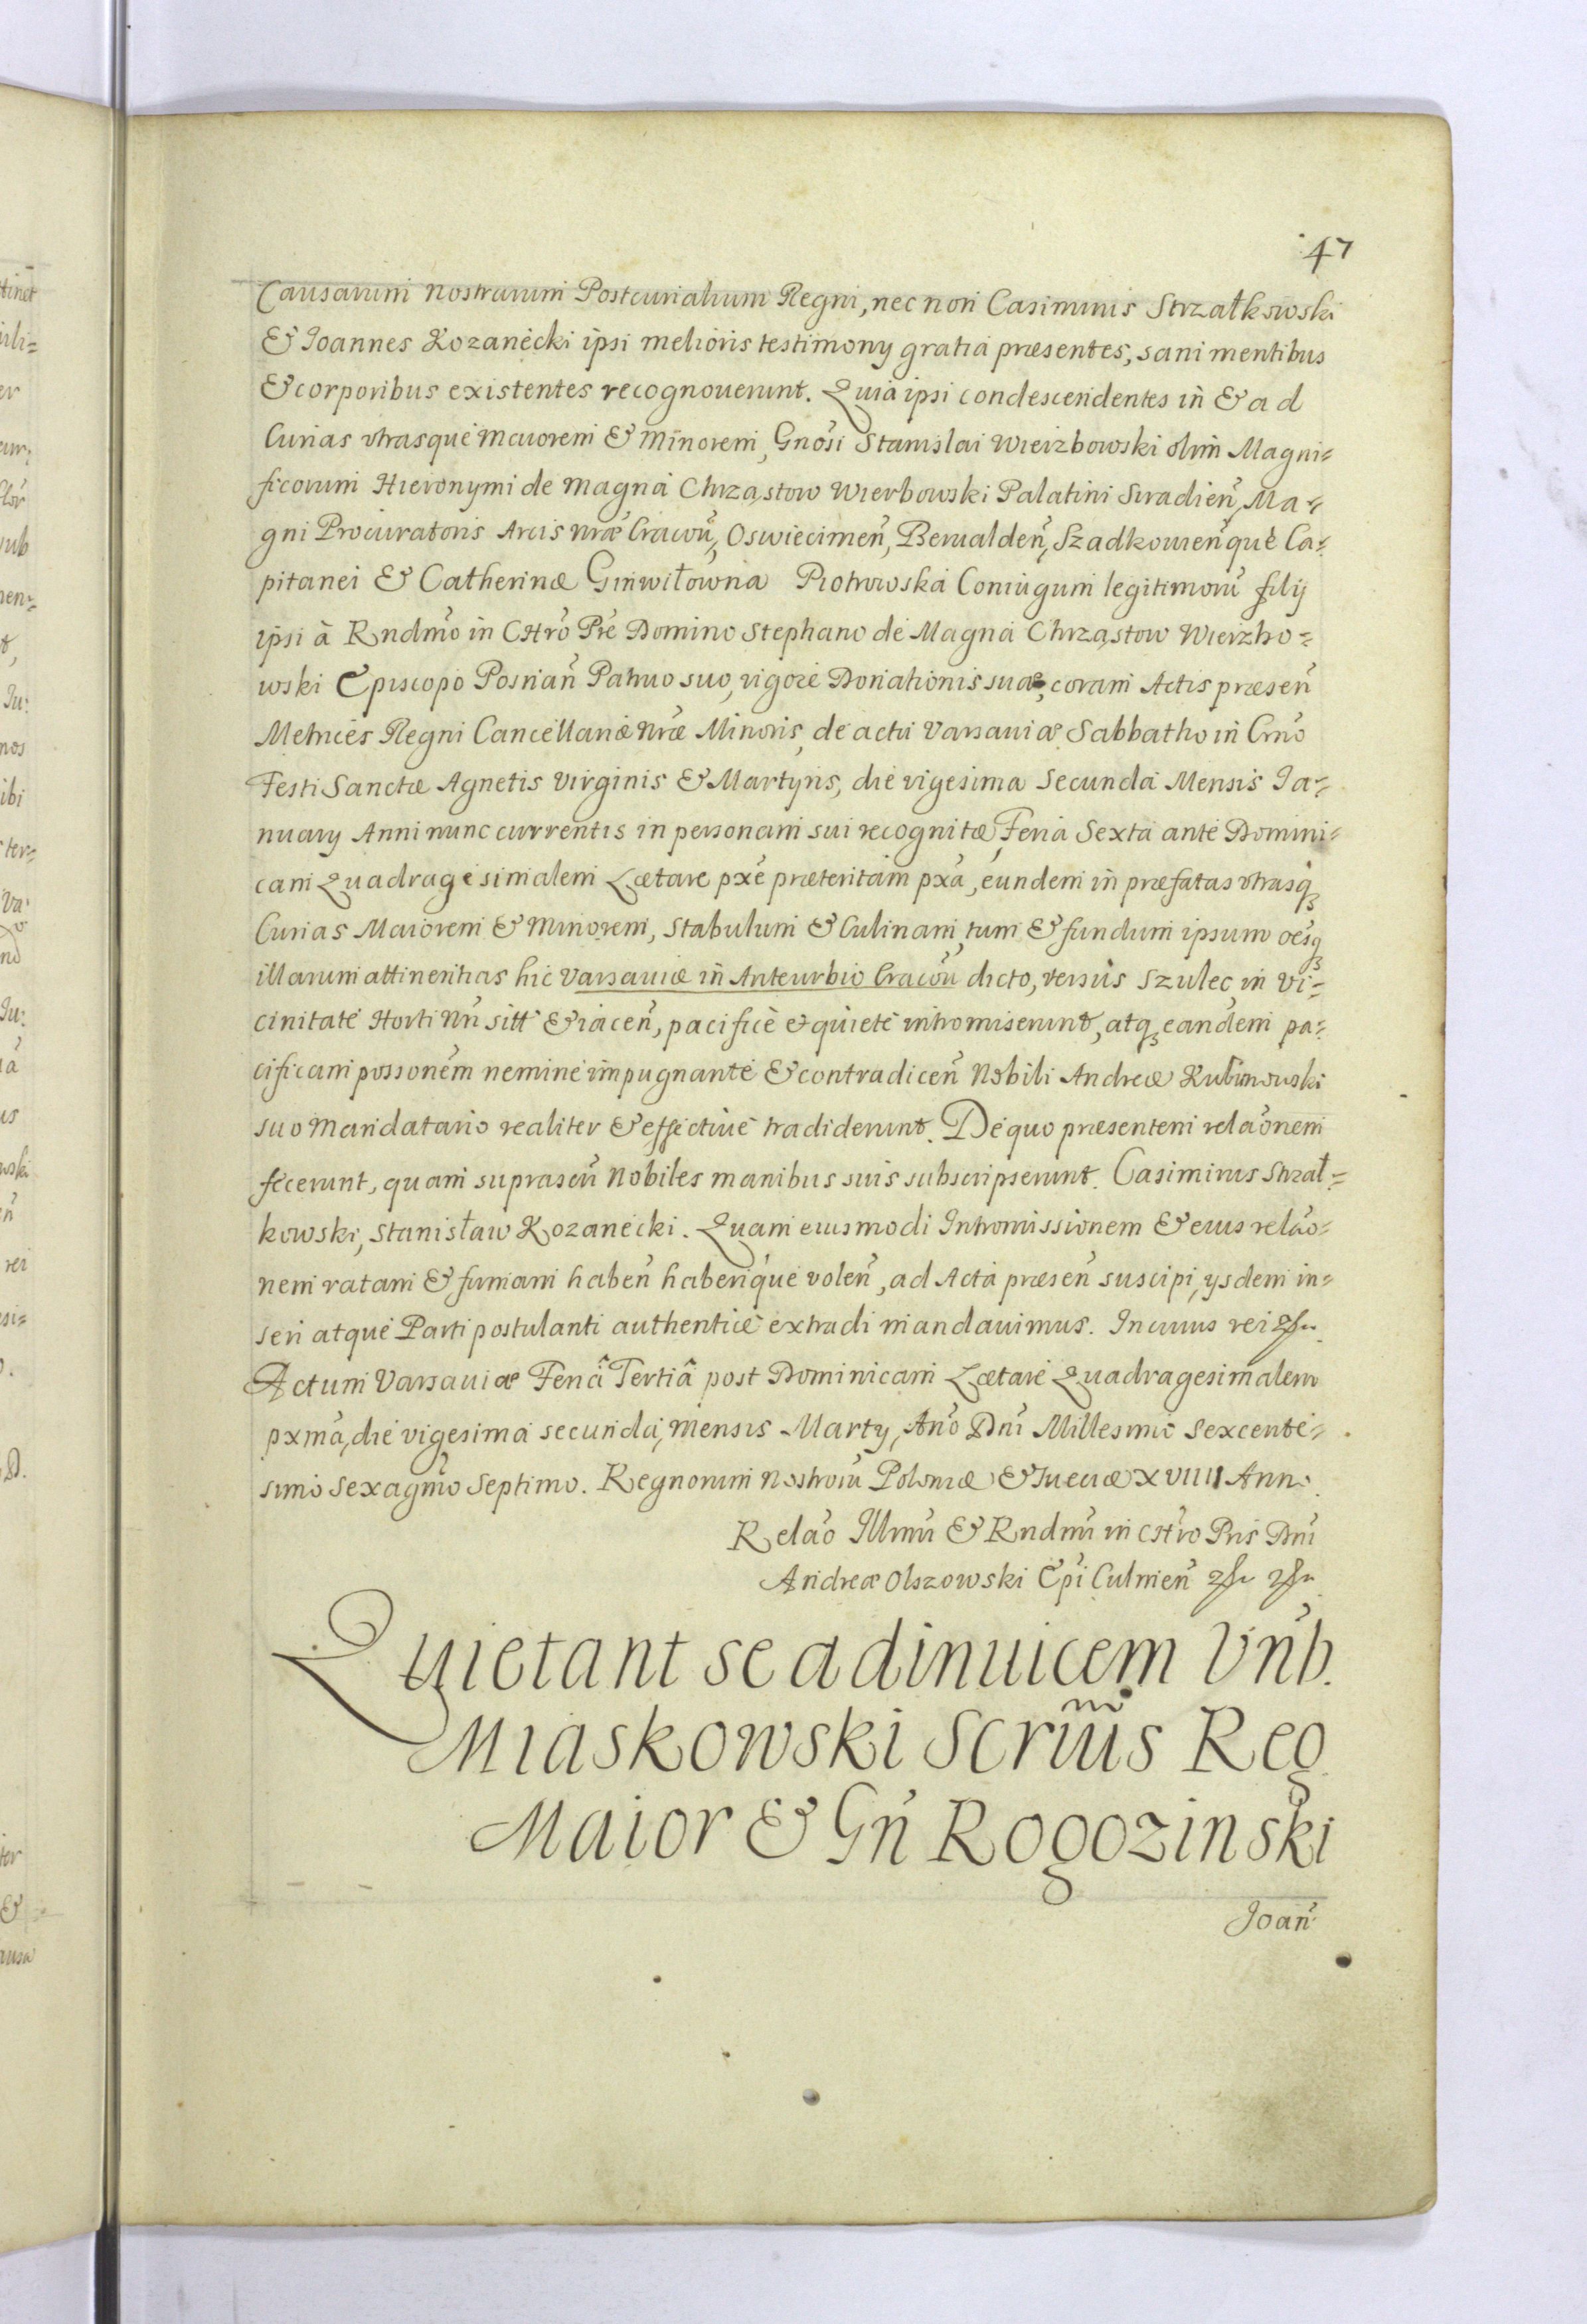 47
Causarum nostrarum Postcurialium Regni, nec non Casimirus Strzałkowski
& Joannes Kozanecki ipsi melioris testimony gratia præsentes, sani mentibus
& corporibus existentes recognoverunt. Quia ipsi condescendentes in & ad
Curias vtrasque Maiorem & Minorem, Gnosi Stanislai Wierzbowski olim Magni=
ficorum Hieronymi de Magna Chrząstow Wierbowski Palatini Siradien̄, Ma=
gni Procuratoris Arcis nr̄æ Cracoū, Oswiecimen̄, Berualden̄, Szadkouien̄que Ca=
pitanei & Catherinæ Ginwiłowna Piotrowska Coniugum legitimorū filij
ipsi à Rndmo in CHro Pre Domino Stephano de Magna Chrząstow Wierzbo=
wski Episcopo Posnan̄ Patruo suo, vigore Donationis suæ, coram Actis præsen̄
Metrices Regni Cancellariæ nr̄æ Minoris, de actu Varsauiæ Sabbatho in Crno
Festi Sanctæ Agnetis Virginis & Martyris, die vigesima Secunda Mensis Ja=
nuary Anni nunc currentis in personam sui recognitæ, Feria Sexta ante Domini=
cam Quadragesimalem Lætare pxe præteritam pxa, eundem in præfatas vtrasq;
Curias Maiorem & Minorem, Stabulum & Culinam, tum & fundum ipsum oēsq;
illarum attinentias hic Varsauiæ in Anteurbio Cracoū dicto, versus Szulec in Vi=
cinitate Horti Nri sitt & iacen̄, pacifice & quiete intromiserunt, atq; eandem pa=
cificam possonem nemine impugnante & contradicen̄ Nobili Andreæ
suo Mandatario realiter & effectiue tradiderunt. De quo præsentem relaonem
fecerunt, quam suprascri Nobiles manibus suis subscripserunt. Casimirus Strzał=
kowski, Stanisław Kozanecki. Quam eiusmodi Intromissionem & eius relao=
nem ratam & firmam haben̄ haberique volen̄, ad Acta præsen̄ suscipi, ysdem in=
seri atque Parti postulanti authentice extradi mandauimus. In cuius rei
Actum Varsauiæ Feriâ Tertiâ post Dominicam Lætare Quadragesimalem
pxma, die vigesima secunda, Mensis Marty, Ano Dni Millesimo Sexcente=
simo Sexagmo Septimo. Regnorum Nostrorū Poloniæ & Sueciæ XVIIII Anno.
Relao Illmi & Rndmi in CHro Pris Dni
Andreæ Olszowski Epi Culmen̄
Quietant se adinuicem Vrib.
Miaskowski Scrius Reg
Maior & Gn̄ Rogozinski
Joan̄